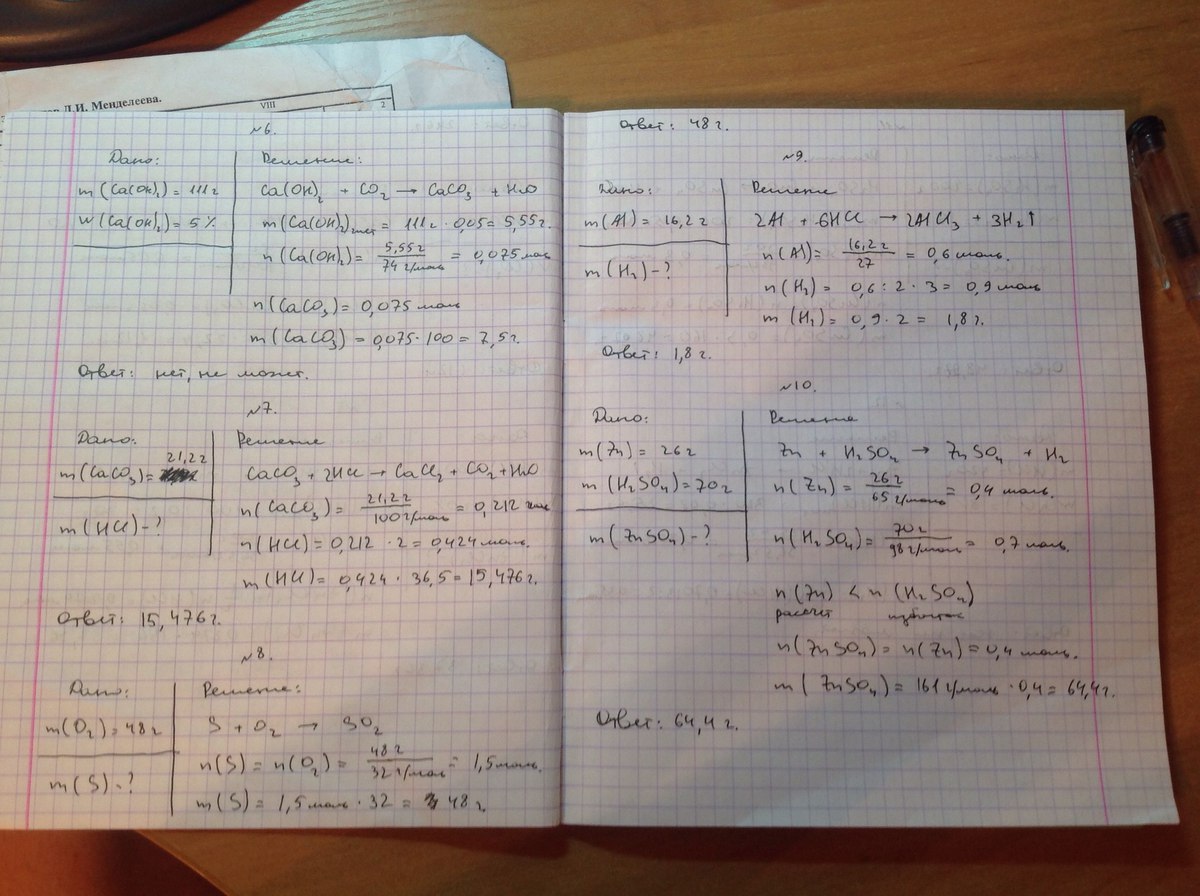 Д.И. Менделеева.
VIII
2
№6.
Дано:
m(Ca(OH)₂) = 111г
W(Ca(OH)₂) = 5%
Решение:
Ca(OH)₂ + CO₂ → CaCO₃ + H₂O
m(Ca(OH)₂)чист = 111г · 0,05 = 5,55г.
n(Ca(OH)₂) = 5,55г / 74 г/моль = 0,075 моль
n(CaCO₃) = 0,075 моль
m(CaCO₃) = 0,075 · 100 = 7,5г.
Ответ: нет, не может.
№7.
Дано:
m(CaCO₃) = 21,2г
m(HCl) - ?
Решение
CaCO₃ + 2HCl → CaCl₂ + CO₂ + H₂O
n(CaCO₃) = 21,2г / 100г/моль = 0,212 моль
n(HCl) = 0,212 · 2 = 0,424 моль.
m(HCl) = 0,424 · 36,5 = 15,476г.
Ответ: 15,476г.
№8.
Дано:
m(O₂) = 48г
m(S) - ?
Решение:
S + O₂ → SO₂
n(S) = n(O₂) = 48г / 32 г/моль = 1,5 моль.
m(S) = 1,5 моль · 32 = 48г.
Ответ: 48г.
№9.
Дано:
m(Al) = 16,2г
m(H₂) - ?
Решение
2Al + 6HCl → 2AlCl₃ + 3H₂↑
n(Al) = 16,2г / 27 = 0,6 моль.
n(H₂) = 0,6 : 2 · 3 = 0,9 моль
m(H₂) = 0,9 · 2 = 1,8г.
Ответ: 1,8г.
№10.
Дано:
m(Zn) = 26г
m(H₂SO₄) = 70г
m(ZnSO₄) - ?
Решение
Zn + H₂SO₄ → ZnSO₄ + H₂
n(Zn) = 26г / 65 г/моль = 0,4 моль.
n(H₂SO₄) = 70г / 98 г/моль = 0,7 моль.
n(Zn) < n(H₂SO₄)
рассчет избыток
n(ZnSO₄) = n(Zn) = 0,4 моль.
m(ZnSO₄) = 161 г/моль · 0,4 = 64,4г.
Ответ: 64,4г.